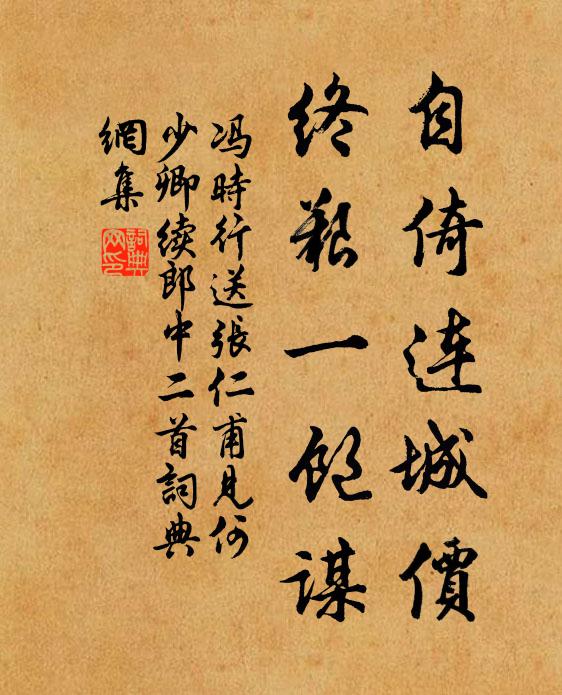 自倚連城價
終艱一飽謀
冯時行送張仁甫見何
少卿续郎中二首詞典
網集
詞典網印